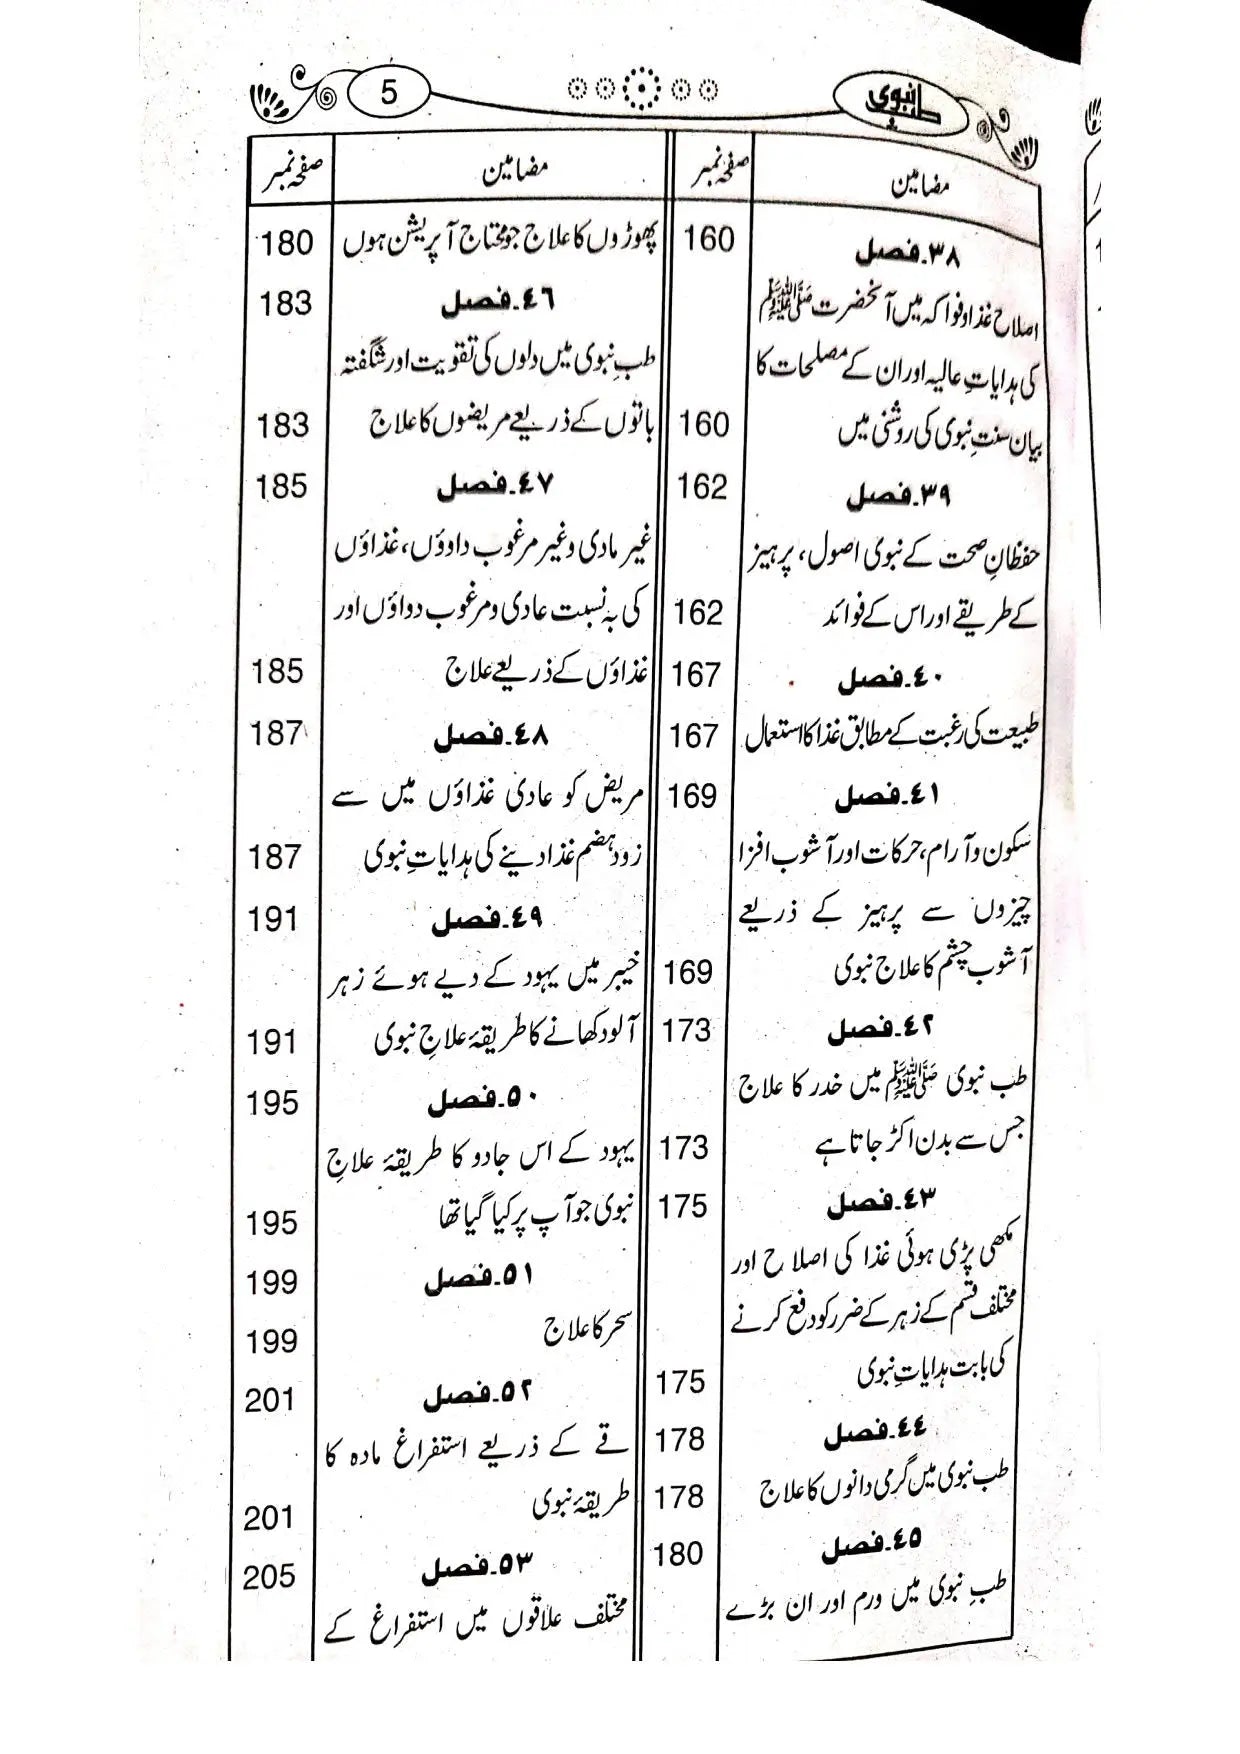 5
طب نبوی
مضامین
صفحہ نمبر
٣٨۔فصل
160
اصلاح غذا و فواکہ میں آنحضرت ﷺ
کی ہدایاتِ عالیہ اور ان کے مصلحات کا
بیان سنتِ نبوی کی روشنی میں
160
٣٩۔فصل
162
حفظانِ صحت کے نبوی اصول، پرہیز
کے طریقے اور اس کے فوائد
162
٤٠۔فصل
167
طبیعت کی رغبت کے مطابق غذا کا استعمال
167
٤١۔فصل
169
سکون و آرام، حرکات اور آشوب افزا
چیزوں سے پرہیز کے ذریعے
آشوب چشم کا علاج نبوی
169
٤٢۔فصل
173
طب نبوی ﷺ میں خدر کا علاج
جس سے بدن اکڑ جاتا ہے
173
٤٣۔فصل
175
مکھی پڑی ہوئی غذا کی اصلاح اور
مختلف قسم کے زہر کے ضرر کو دفع کرنے
کی بابت ہدایاتِ نبوی
175
٤٤۔فصل
178
طب نبوی میں گرمی دانوں کا علاج
178
٤٥۔فصل
180
طبِ نبوی میں ورم اور ان بڑے
مضامین
صفحہ نمبر
پھوڑوں کا علاج جو محتاج آپریشن ہوں
180
٤٦۔فصل
183
طبِ نبوی میں دلوں کی تقویت اور شگفتہ
باتوں کے ذریعے مریضوں کا علاج
183
٤٧۔فصل
185
غیر مادی وغیر مرغوب داوؤں، غذاؤں
کی بہ نسبت عادی و مرغوب دواؤں اور
غذاؤں کے ذریعے علاج
185
٤٨۔فصل
187
مریض کو عادی غذاؤں میں سے
زود ہضم غذا دینے کی ہدایاتِ نبوی
187
٤٩۔فصل
191
خیبر میں یہود کے دیے ہوئے زہر
آلود کھانے کا طریقۂ علاجِ نبوی
191
٥٠۔فصل
195
یہود کے اس جادو کا طریقۂ علاجِ
نبوی جو آپ پر کیا گیا تھا
195
٥١۔فصل
199
سحر کا علاج
199
٥٢۔فصل
201
قے کے ذریعے استفراغ مادہ کا
طریقۂ نبوی
201
٥٣۔فصل
205
مختلف علاقوں میں استفراغ کے